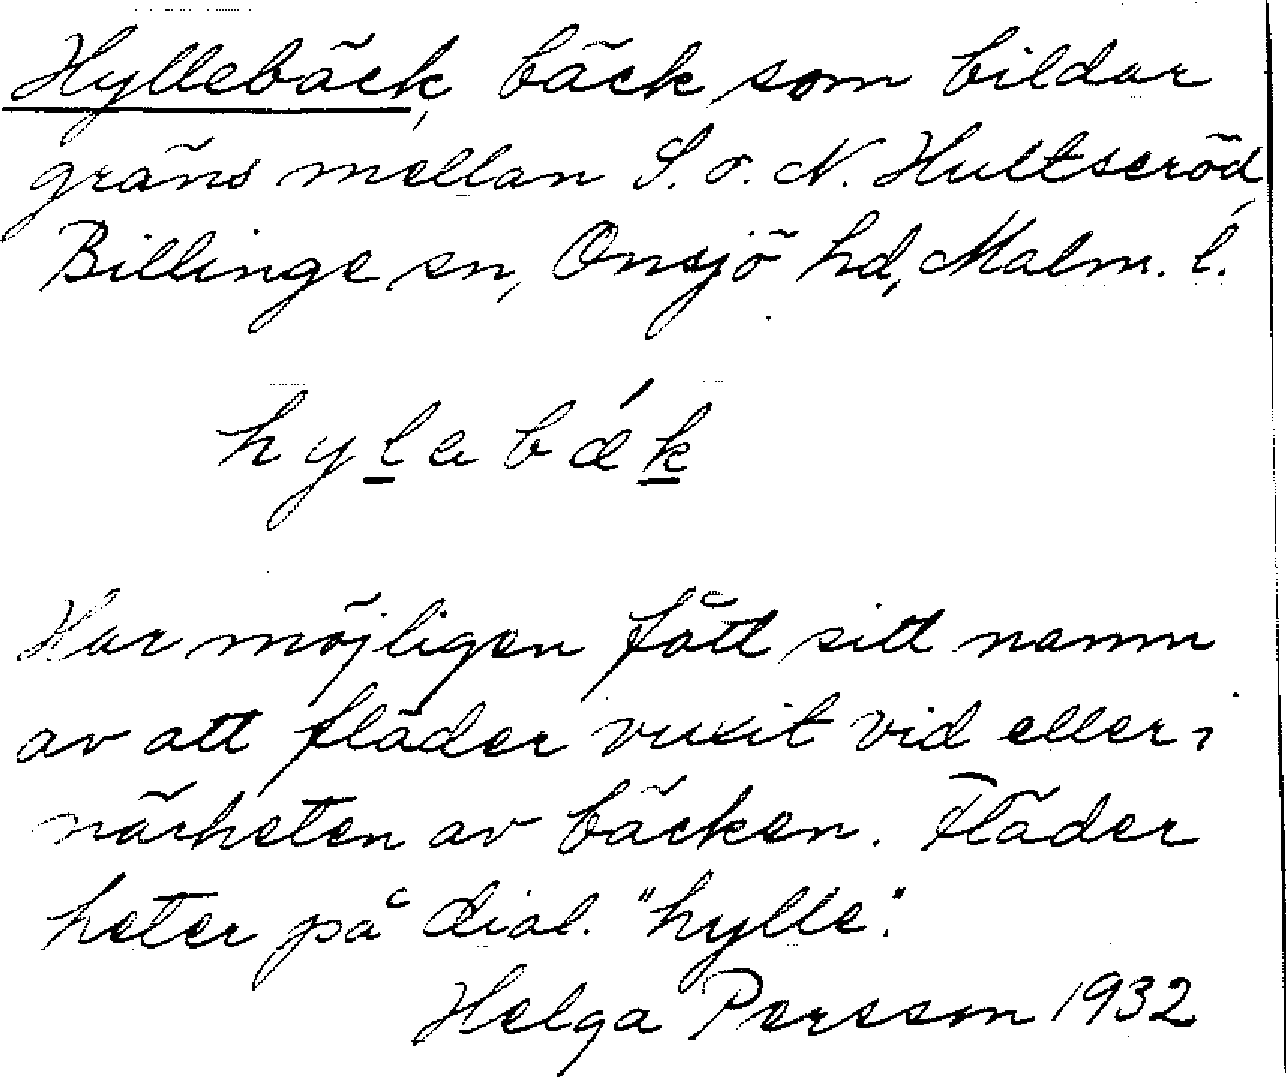 Hyllebäck, bäck som bildar
gräns mellan S. o. N. Hultseröd,
Billinge sn, Onsjö hd, Malm. l.
hylabák
Har möjligen fått sitt namn
av att fläder vuxit vid eller i
närheten av bäcken. Fläder
heter på dial. "hylle".
Helga Persson 1932